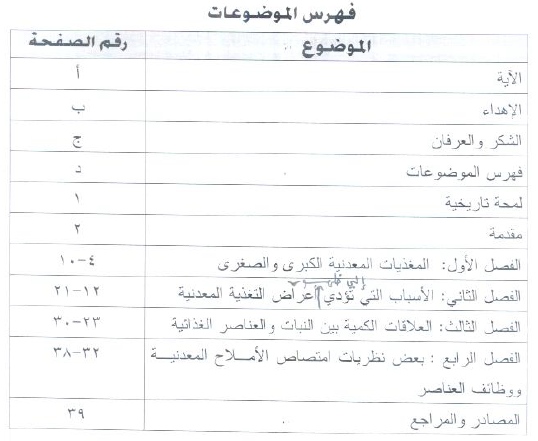 فهرس الموضوعات
الموضوع رقم الصفحة
الآية أ
الإهداء ب
الشكر والعرفان ج
فهرس الموضوعات د
لمحة تاريخية ١
مقدمة ٢
الفصل الأول: المغذيات المعدنية الكبرى والصغرى ٤-١٠
إلى
الفصل الثاني: الأسباب التي تؤدي أعراض التغذية المعدنية ١٢-٢١
الفصل الثالث: العلاقات الكمية بين النبات والعناصر الغذائية ٢٣-٣٠
الفصل الرابع : بعض نظريات امتصاص الأملاح المعدنيـــة ٣٢-٣٨
ووظائف العناصر
المصادر والمراجع ٣٩